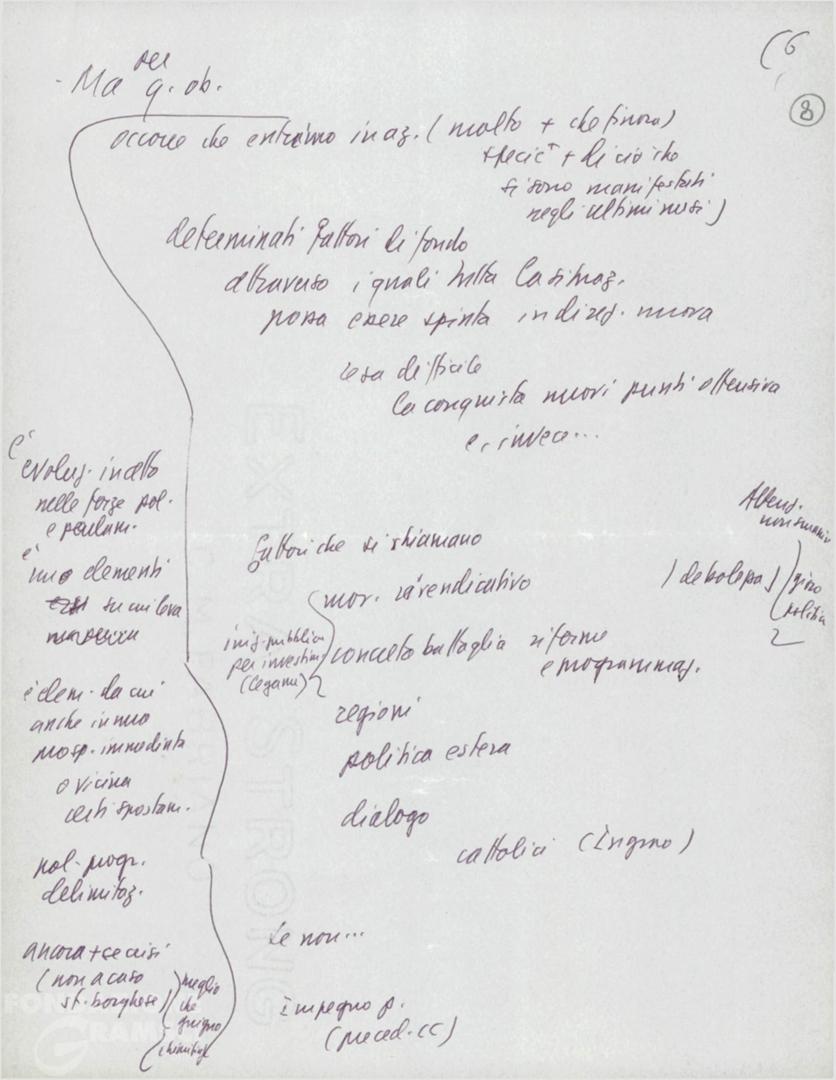 (6
8
- Ma per q. ob.
occorre che entrino in az. (molto + che finora)
+ di ciò che
si sono manifestati
negli ultimi mesi)
determinati fattori di fondo
attraverso i quali tutta la situaz.
possa essere spinta in direz. nuova
resa difficile
la conquista nuovi punti offensiva
e, invece...
è
evoluz. in atto
nelle forze pol.
e parlam.
è
elementi
su cui leva
è elem. da cui
anche in
prosp. immediata
o vicina
certi spostam.
pol. progr.
delimitaz.
ancora + decisi
(non a caso
st. borghese)
meglio
che
giugno
fattori che si chiamano
mov. rivendicativo
(debolezza)
giro
politica
2
imp. pubblica
per investim.
(legami)
concreto battaglia riforme
e programmaz.
regioni
politica estera
dialogo
cattolici (Ingrao)
se non...
impegno p.
(preced. CC)
EXTRA STRONG
FABRIANO
FONDAZIONE
GRAMSCI